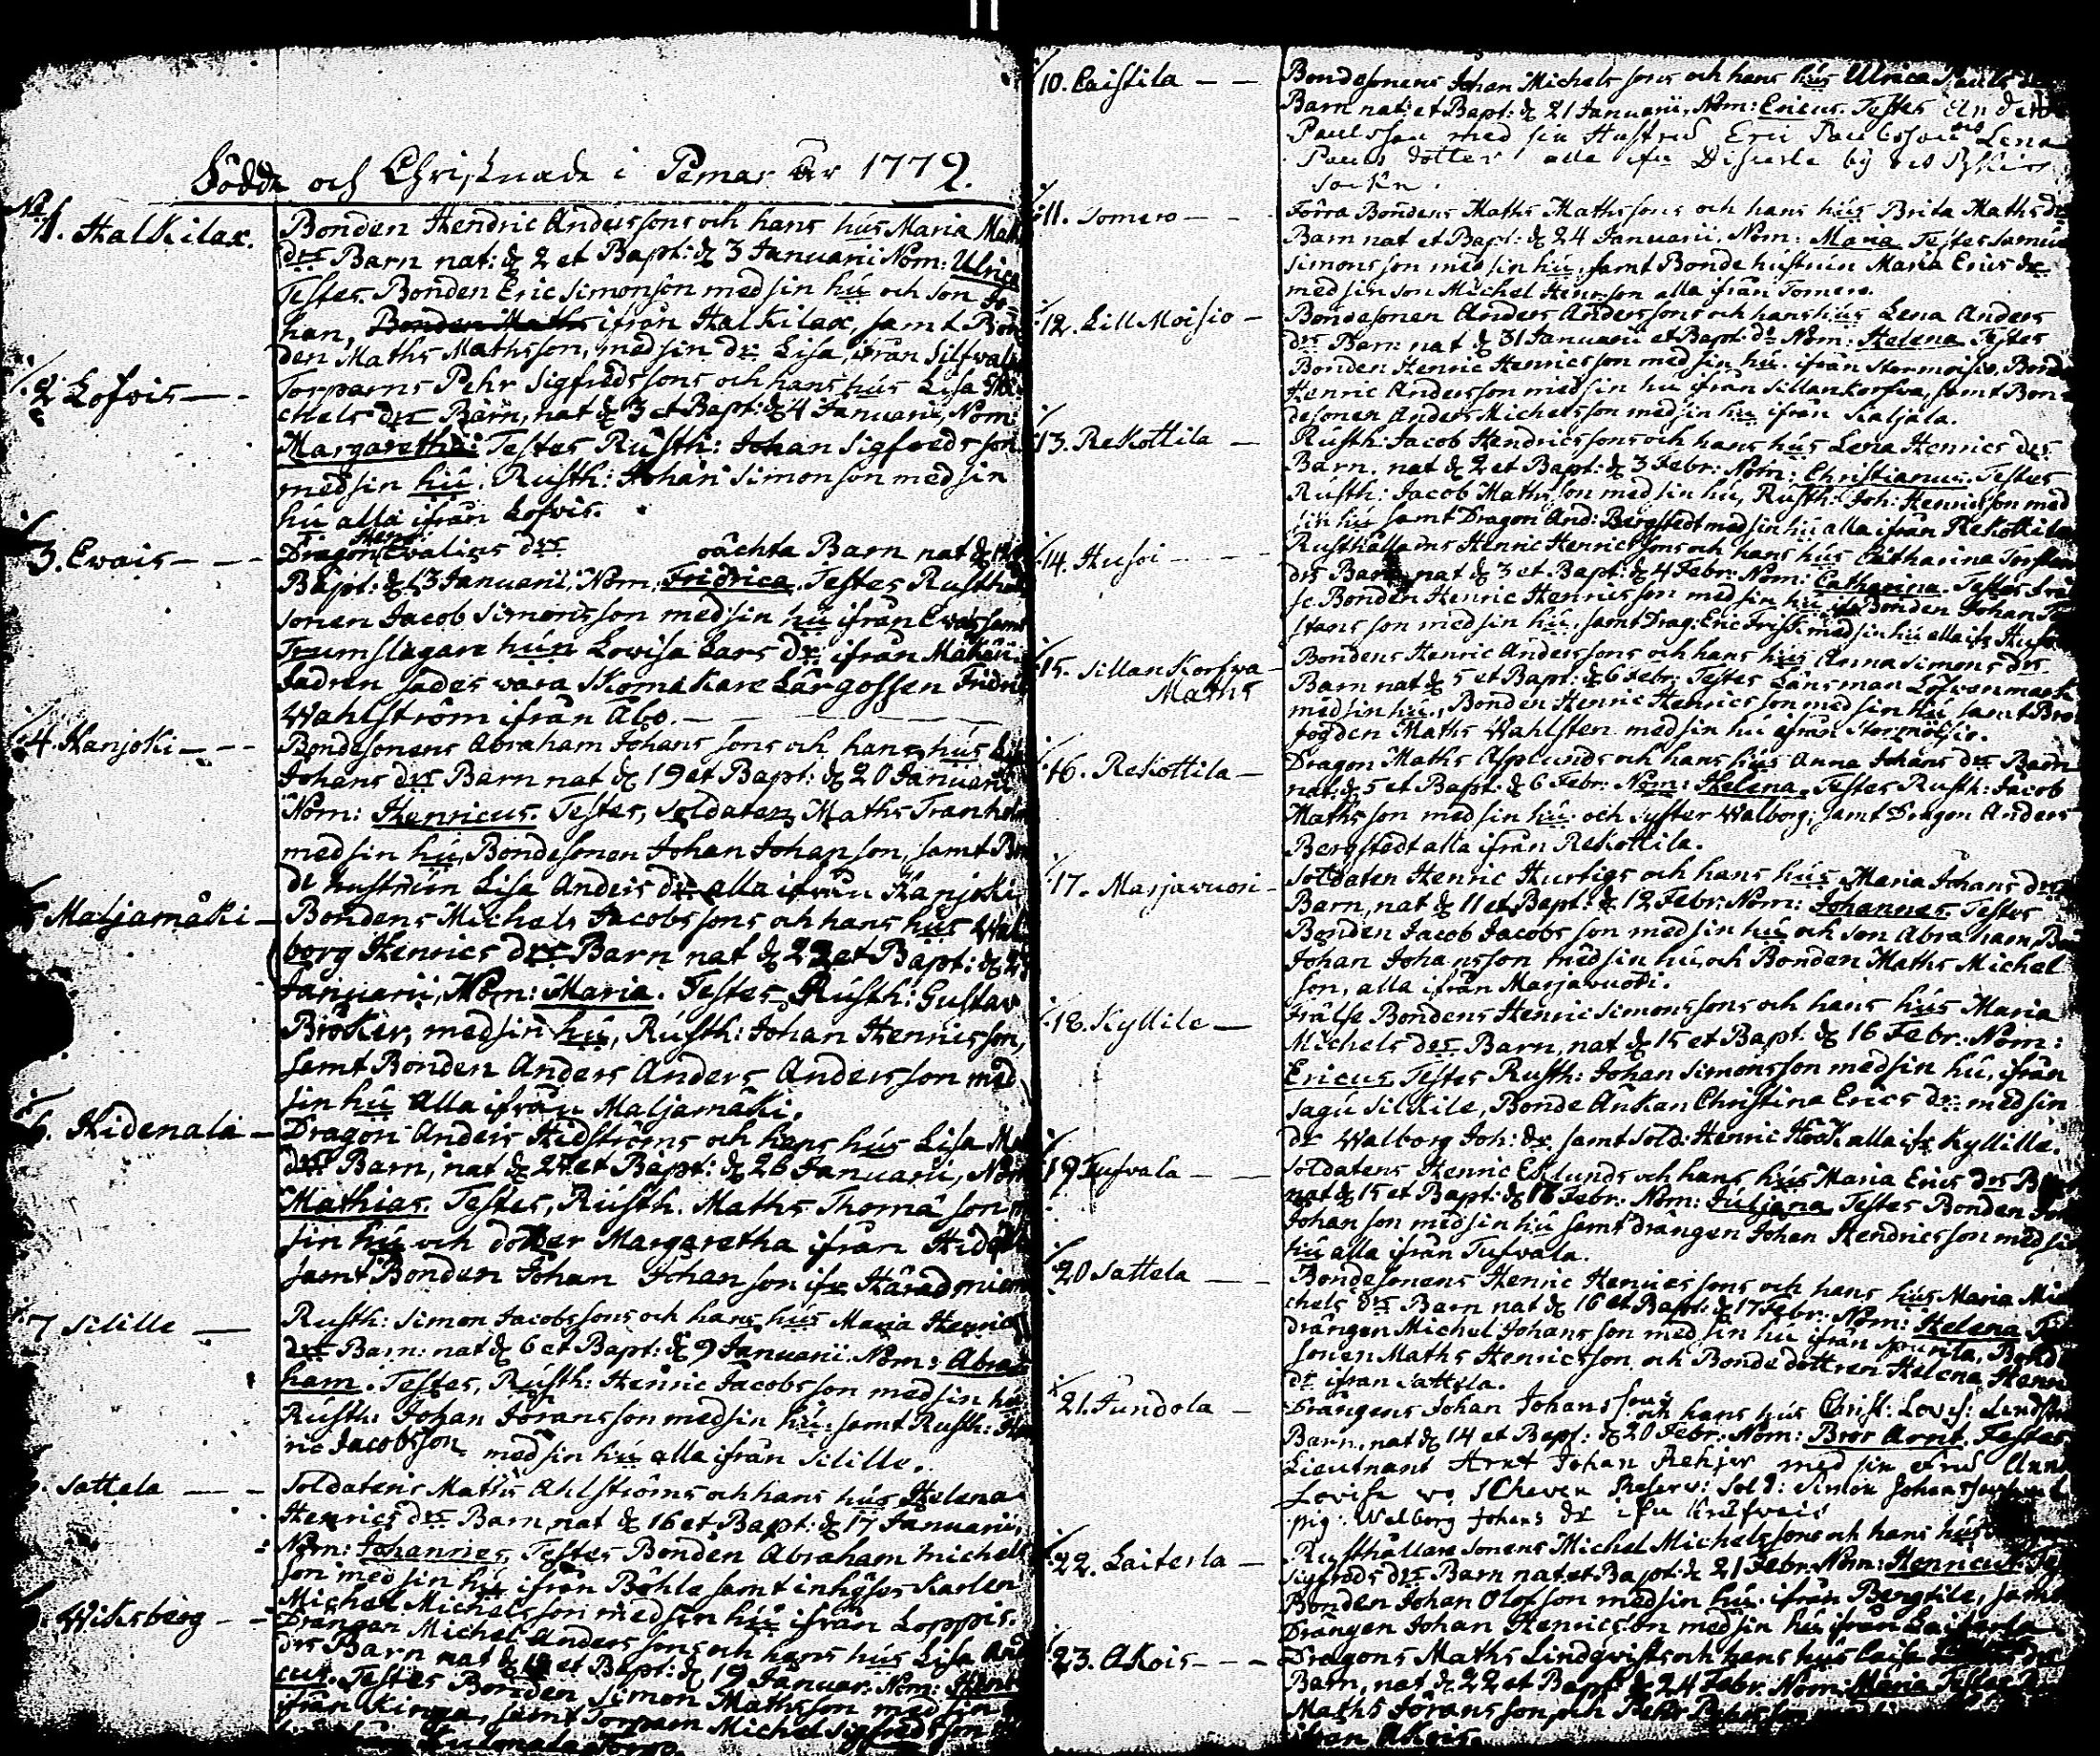 Födde och Christnade i Pemar År 1772.
No 1. Halkilax. Bonden Hendric Anderssons och hans hús Maria Math
drs Barn nat: d. 2 et Bapt: d. 3 Januarii Nom: Ulrica
Testes. Bonden Eric Simonson med sin hú och son Jo-
han, Bonden Maths ifrån Halkilax, samt Bon
den Maths Mathsson, med sin dr Lisa, ifrån
2 Lofvis — Torparns Pehr Sigfredssons och hans hús Lisa Mi
chels drs Barn, nat d. 3 et Bapt: d. 4 Januarii, Nom:
Margaretha: Testes Rusth: Johan Sigfreds son
med sin hú. Rusth: Johan Simonson med sin
hú alla ifrån Lofvis.
3. Evais — Dragon Evalins drs oächta Barn nat d.
Bapt: d. 13 Januarii, Nom: Fridrica. Testes Rusthol
sonen Jacob Simonsson med sin hú ifrån Evais samt
Trumslagare hún Lovisa Lars dr ifrån
fadren sades vara Skomakare Lärgossen Fridric
Wahlström ifrån Åbo. —
4. Hanjoki — Bondesonens Abraham Johans sons och hans hús Lisa
Johans drs Barn nat d. 19 et Bapt: d. 20 Januarii
Nom: Henricus. Testes, Soldaten Maths Tranholm
med sin hú, Bondesonen Johan Johanson, samt Bon
de hustrun Lisa Anders dr alla ifrån Hanjoki
Maljamäki — Bondens Michels Jacobssons och hans hús Wal
borg Henrics drs Barn nat d. 22 et Bapt: d. 23
Januarii, Nom: Maria. Testes Rusth: Gustav
Bröker, med sin hú, Rusth: Johan Henricsson,
samt Bonden Anders Anders Andersson med
sin hú alla ifrån Maljamäki.
6. Hidenala — Dragon Anders Hidströms och hans hús Lisa
drs Barn, nat d. 24 et Bapt: d. 26 Januarii, Nom
Mathias. Testes, Rusth. Maths Thomä son
sin hú och dotter Margaretha ifrån
samt Bonden Johan Johanson ifr
7 Silille — Rusth: Simon Jacobssons och hans hús Maria Henrics
drs Barn: nat d. 6 et Bapt: d. 9 Januarii. Nom: Abra
ham. Testes, Rusth: Henric Jacobsson med sin hú
Rusth: Johan Jöransson med sin hú. samt Rusth: Hen
ric Jacobsson med sin hú alla ifrån Silille.
Sattela — Soldatens Maths Ahlströms och hans hús Helena
Henrics drs Barn, nat d. 16 et Bapt: d. 17 Januarii,
Nom: Johannes, Testes Bonden Abraham Michels
son med sin hú ifrån Böhle samt inhyses Karlen
Michel Michelsson med sin hú ifrån Loppis.
Wiksberg — Drängen Michel Anders sons och hans hús Lisa And
drs Barn nat d. 18 et Bapt: d. 19 Januar: Nom: Henri
cus. Testes Bonden Simon Mathsson med sin
ifrån Ringa, samt Torparn Michel Sigfredsson
10. Caistila — Bondesonens Johan Michels sons och hans hús Ulrica Pauls
Barn nat: et Bapt: d. 21 Januarii, Nom: Ericus. Testes Anders
Paulsson med sin Hustru Eric Paulsson och Lena
Pauls dotter alla ifrn by
Sockn.
11. Tomero — Förra Bondens Maths Mathssons och hans hús Brita Maths drs
Barn nat et Bapt: d. 24 Januarii. Nom: Maria Testes Samuel
Simonsson med sin hú, samt Bonde hustrun Maria Erics dr
med sin son Michel Henrson alla ifrån Tomero.
12. Lill Moisio — Bondesonen Anders Anderssons och hans hús Lena Anders
drs Barn nat d. 31 Januarii et Bapt: do Nom: Helena Testes
Bonden Henric Henricsson med sin hú. ifrån Stormoisio, Bonde
Henric Andersson med sin hú ifrån Sillankorfva, samt Bon-
desonen Anders Michelsson med sin hú ifrån Kaljala.
13. Rekottila — Rusth: Jacob Hendricssons och hans hús Lena Henrics drs
Barn. nat d. 2 et Bapt: d. 3 Febr: Nom: Christianus. Testes
Rusth: Jacob Mathsson med sin hú, Rusth: Joh: Henricsson med
sin hú samt Dragon And: Bergstedt med sin hú alla ifrån Rekottila
14. Husoi — Rusthållarns Henric Henricssons och hans hús Catharina
drs Barn nat d. 3 et Bapt: d. 4 Febr: Nom: Catharina. Testes Fräl
se Bonden Henric Henricsson med sin hú ifr Bonden Johan
stans son med sin hú, samt Drag: Eric Frisk med sin hú alla ifr
15. Sillankorfva Maths Bondens Henric Anderssons och hans hús Anna Simons drs
Barn nat d. 5 et Bapt: d. 6 Febr: Testes Länsman
med sin hú, Bonden Henric Henricsson med sin hú samt Bro
fogden Maths Wahlsten med sin hú ifrån Stormoisio.
16. Rekottila — Dragon Maths Asplunds och hans hús Anna Johans drs Barn
nat: d. 5 et Bapt: d. 6 Febr: Nom: Helena. Testes Rusth: Jacob
Mathsson med sin hú. och syster Walborg, samt Dragon Anders
Bergstedt alla ifrån Rekottila.
17. Marjavuori — Soldaten Henric Hurtigs och hans hús Maria Johans drs
Barn, nat d. 11 et Bapt: d. 12 Febr: Nom: Johannes. Testes
Bonden Jacob Jacobsson med sin hú och son Abraham,
Johan Johansson med sin hú, och Bonden Maths Michel
son, alla ifrån Marjavuori.
18. Kyllile — Frälse Bondens Henric Simonssons och hans hús Maria
Michels drs Barn, nat d. 15 et Bapt. d. 16 Febr. Nom:
Ericus. Testes Rusth: Johan Simonsson med sin hú, ifrån
Sagú Silkile, Bonde Änkan Christina Erics dr med sin
dr Walborg Joh: dr samt Sold: Henric Höök alla ifr Kyllille.
19 Tufvala — Soldatens Henric Eklunds och hans hús Maria Erics drs
nat d. 15 et Bapt: d. 16 Febr: Nom: Juljana Testes Bonden
Johanson med sin hú samt drängen Johan Hendricsson med sin
hú alla ifrån Tufvala.
20 Sattela — Bondesonens Henric Henricssons och hans hús Maria Mi
chels drs Barn nat d. 16 et Bapt: d. 17 Febr. Nom: Helena
drängen Michel Johansson med sin hú ifrån Spurila, Bonde
sonen Maths Henricsson, och Bonde dottren Helena Henri
dr ifrån Sattela.
21. Jundola — Drängens Johan Johanssons och hans hús Christ: Lovis:
Barn, nat d. 14 et Bapt: d. 20 Febr. Nom: Bror Arnt. Testes
Lieutnant Arnt Johan med sin fru Ann
Lovisa Reserv: Sold: Simon Johansson
pig: Walborg Johans dr ifrn
22. Laiterla — Rusthållare sonens Michel Michelssons och hans hús
Sigfreds drs Barn nat et Bapt: d. 21 Febr: Nom: Henricus.
Bonden Johan Olofsson med sin hú. ifrån Bergtile, samt
Drängen Johan Henricson med sin hú ifrån Laiterla
23. Akois — Dragons Maths Lindqvists och hans hús Caisa
Barn, nat d. 22 et Bapt: d. 24 Febr. Nom: Maria Testes
Maths Jöransson, och Pehr
ifrån Akois.